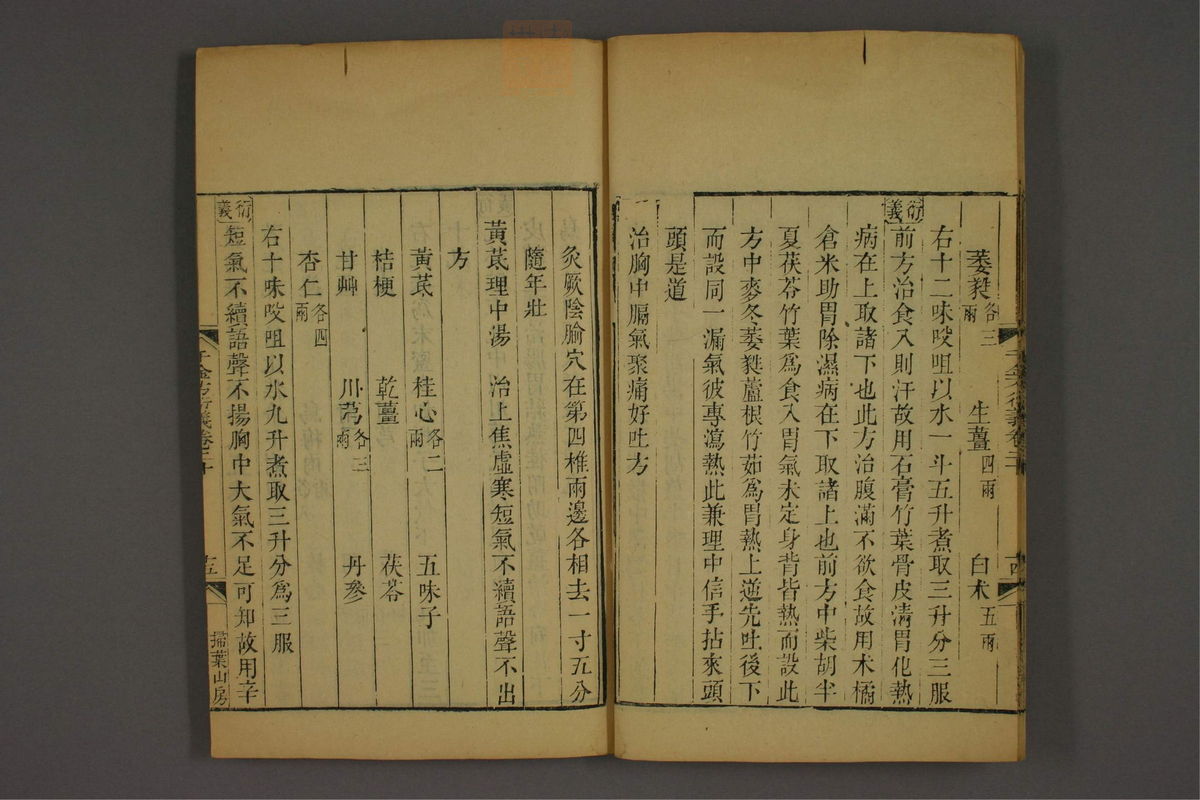 萎㽔各三兩　生薑四兩　白朮五兩
右十二味㕮咀以水一斗五升煮取三升分三服
衍義
前方治食入則汗故用石膏竹葉骨皮清胃化熱
病在上取諸下也此方治腹滿不欲食故用朮橘
倉米助胃除濕病在下取諸上也前方中柴胡半
夏茯苓竹葉爲食入胃氣未定身背皆熱而設此
方中麥冬萎㽔蘆根竹茹爲胃熱上逆先吐後下
而設同一漏氣彼專瀉熱此兼理中信手拈來頭
頭是道
治胸中膈氣聚痛好吐方
灸厥陰腧穴在第四椎兩邊各相去一寸五分
隨年壯
黃芪理中湯　治上焦虛寒短氣不續語聲不出
方
黃芪　桂心各二兩　五味子
桔梗　乾薑　茯苓
甘艸　川芎各三兩　丹參
杏仁各四兩
右十味㕮咀以水九升煮取三升分爲三服
衍義
短氣不續語聲不揚胸中大氣不足可知故用辛
千金方衍義卷二十
十五
掃葉山房
十四